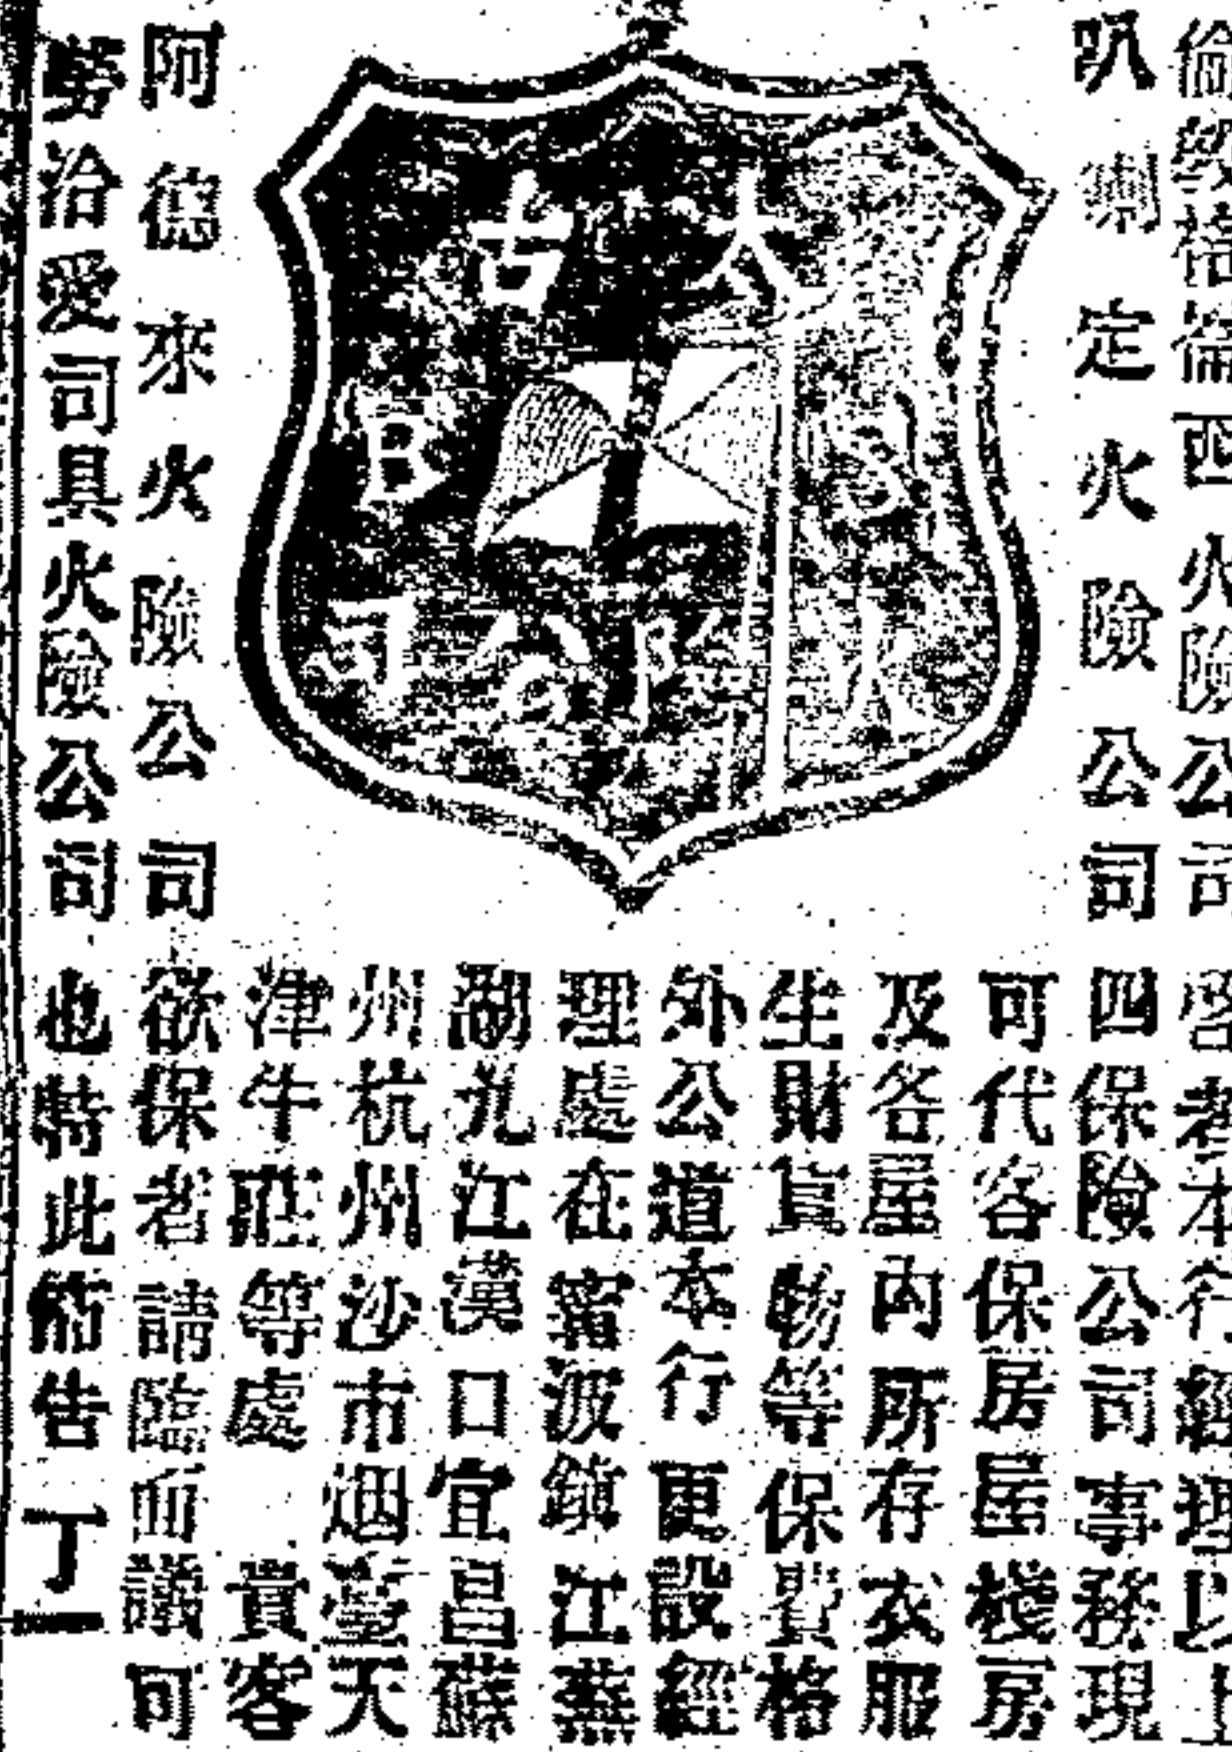 倫西火險公司
叭喇定火險公司
太古
火險公司
阿德來火險公司
勞洽愛司具火險公司
啓者本行經理以上
四保險公司事務現
可代客保房屋棧房
及各屋內所存衣服
生財貨物等保費格
外公道本行更設經
理處在甯波鎮江蕪
湖九江漢口宜昌蘇
州杭州沙市烟臺天
津牛莊等處 貴客
欲保者請臨面議可
也特此佈告 丁一